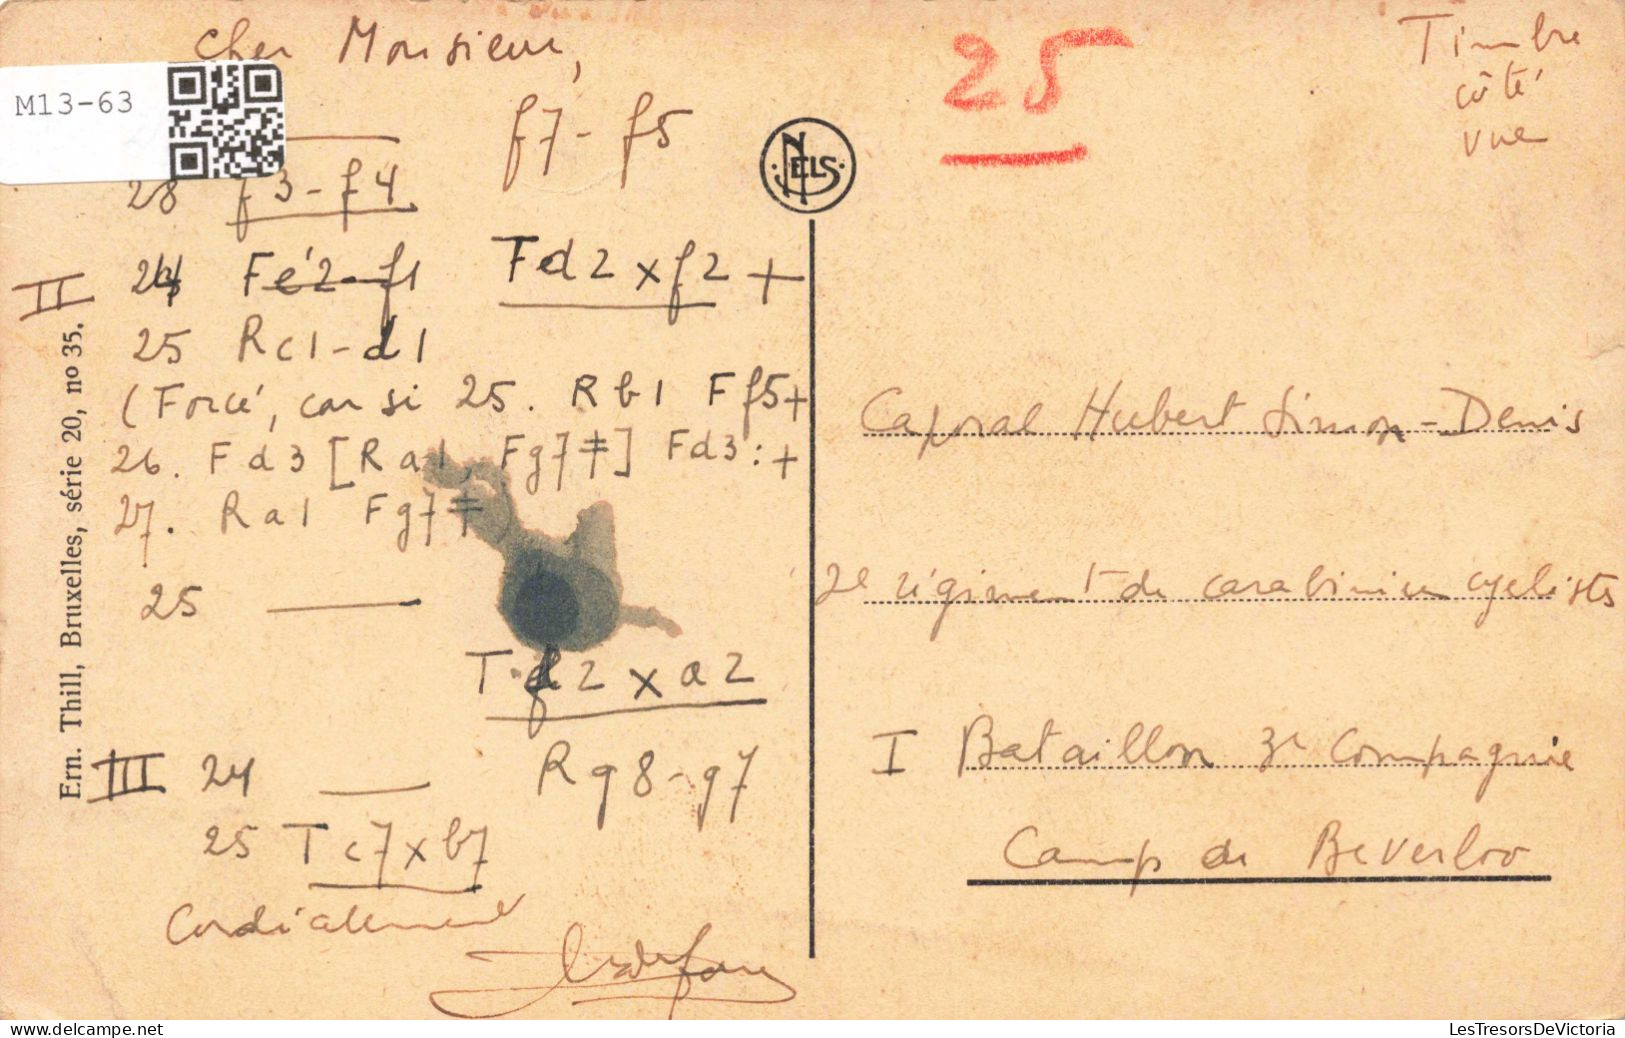 M13-63
Cher Monsieur,
f7 - f5
28 f3 - f4
II 24 Fé2-f1 Td2 x f2 +
25 Rc1-d1
(Forcé, car si 25. Rb1 Ff5+
26. Fd3 [Ra1, Fg7≠] Fd3:+
27. Ra1 Fg7≠
25 ——
Td2 x a2
III 24 — Rg8-g7
25 Tc7xb7
Cordialement
Ern. Thill, Bruxelles, série 20, no 35.
NELS
25
Timbre
côté
vue
Caporal Hubert Simon-Denis
2e régiment de carabinier cyclistes
I Bataillon 3e Compagnie
Camp de Beverloo
LesTresorsDeVictoria
delcampe.net